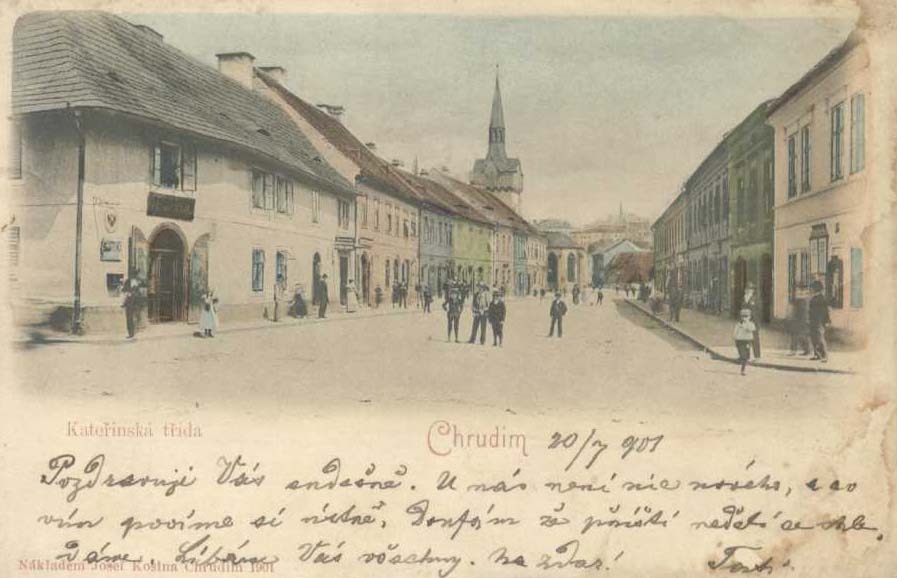 Kateřinská třída
Chrudim 20/7 901
Pozdravuji Vás srdečně. U nás není nic nového, a co
povíme si ústně. Doufám že příští neděli se shle
dáme. Líbám Vás všechny. Na zdar!
Nákladem Josef Kosina Chrudim 1901